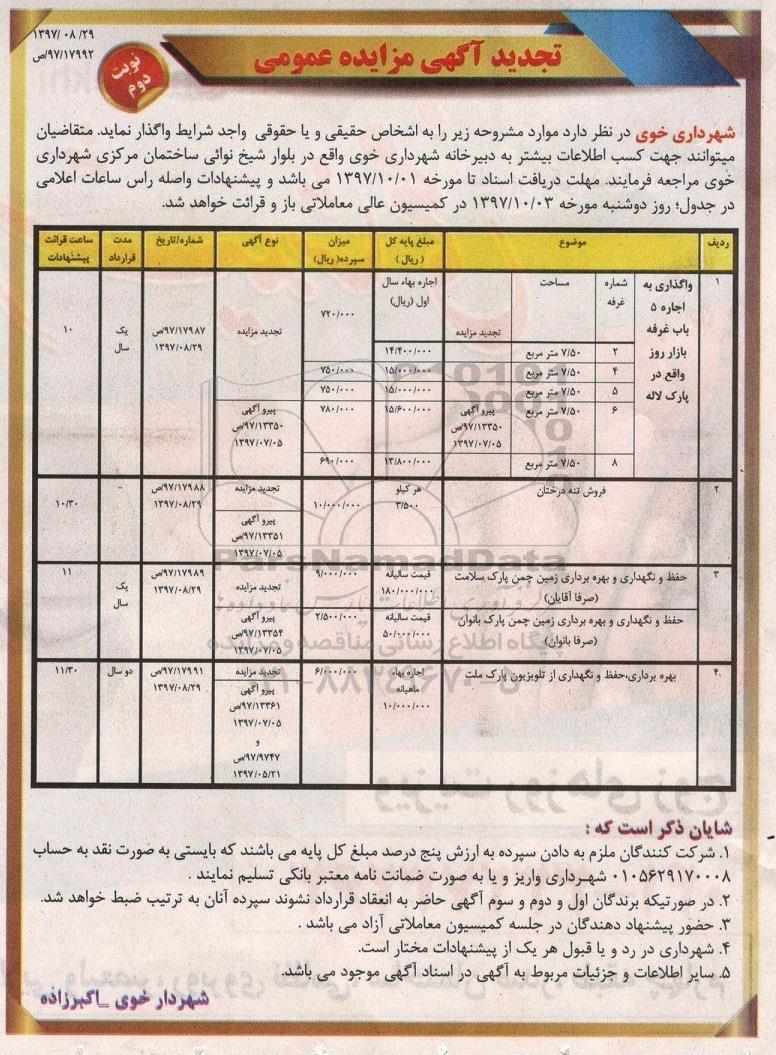 ۱۳۹۷/۰۸/۲۹
۹۷/۱۷۹۹۲/ص
نوبت دوم
تجدید آگهی مزایده عمومی
شهرداری خوی در نظر دارد موارد مشروحه زیر را به اشخاص حقیقی و یا حقوقی واجد شرایط واگذار نماید. متقاضیان
میتوانند جهت کسب اطلاعات بیشتر به دبیرخانه شهرداری خوی واقع در بلوار شیخ نوائی ساختمان مرکزی شهرداری
خوی مراجعه فرمایند. مهلت دریافت اسناد تا مورخه ۱۳۹۷/۱۰/۰۱ می باشد و پیشنهادات واصله راس ساعات اعلامی
در جدول؛ روز دوشنبه مورخه ۱۳۹۷/۱۰/۰۳ در کمیسیون عالی معاملاتی باز و قرائت خواهد شد.
ردیف موضوع مبلغ پایه کل (ریال) میزان سپرده(ریال) نوع آگهی شماره/تاریخ مدت قرارداد ساعت قرائت پیشنهادات
۱ واگذاری به اجاره ۵ باب غرفه بازار روز واقع در پارک لاله شماره غرفه مساحت تجدید مزایده اجاره بهاء سال اول (ریال) ۷۲۰/۰۰۰ تجدید مزایده ۹۷/۱۷۹۸۷/ص ۱۳۹۷/۰۸/۲۹ یک سال ۱۰
۲ ۷/۵۰ متر مربع ۱۴/۴۰۰/۰۰۰
۴ ۷/۵۰ متر مربع ۱۵/۰۰۰/۰۰۰ ۷۵۰/۰۰۰
۵ ۷/۵۰ متر مربع ۱۵/۰۰۰/۰۰۰ ۷۵۰/۰۰۰
۶ ۷/۵۰ متر مربع پیرو آگهی ۹۷/۱۳۳۵۰/ص ۱۳۹۷/۰۷/۰۵ ۱۵/۶۰۰/۰۰۰ ۷۸۰/۰۰۰ پیرو آگهی ۹۷/۱۳۳۵۰/ص ۱۳۹۷/۰۷/۰۵
۸ ۷/۵۰ متر مربع ۱۳/۸۰۰/۰۰۰ ۶۹۰/۰۰۰
۲ فروش تنه درختان هر کیلو ۳/۵۰۰ ۱۰/۰۰۰/۰۰۰ تجدید مزایده ۹۷/۱۷۹۸۸/ص ۱۳۹۷/۰۸/۲۹ - ۱۰/۳۰
پیرو آگهی ۹۷/۱۳۳۵۱/ص ۱۳۹۷/۰۷/۰۵
۳ حفظ و نگهداری و بهره برداری زمین چمن پارک سلامت (صرفا آقایان) قیمت سالیانه ۱۸۰/۰۰۰/۰۰۰ ۹/۰۰۰/۰۰۰ تجدید مزایده ۹۷/۱۷۹۸۹/ص ۱۳۹۷/۰۸/۲۹ یک سال ۱۱
حفظ و نگهداری و بهره برداری زمین چمن پارک بانوان (صرفا بانوان) قیمت سالیانه ۵۰/۰۰۰/۰۰۰ ۲/۵۰۰/۰۰۰ پیرو آگهی ۹۷/۱۳۳۵۴/ص ۱۳۹۷/۰۷/۰۵
۴ بهره برداری،حفظ و نگهداری از تلویزیون پارک ملت اجاره بهاء ماهیانه ۱۰/۰۰۰/۰۰۰ ۶/۰۰۰/۰۰۰ تجدید مزایده ۹۷/۱۷۹۹۱/ص ۱۳۹۷/۰۸/۲۹ دو سال ۱۱/۳۰
پیرو آگهی ۹۷/۱۳۳۶۱/ص ۱۳۹۷/۰۷/۰۵ و ۹۷/۹۷۴۷/ص ۱۳۹۷/۰۵/۲۱
ParsNamadData
پایگاه اطلاع رسانی مناقصه و مزایده
شایان ذکر است که :
۱. شرکت کنندگان ملزم به دادن سپرده به ارزش پنج درصد مبلغ کل پایه می باشند که بایستی به صورت نقد به حساب
۰۱۰۵۶۲۹۱۷۰۰۰۸ شهرداری واریز و یا به صورت ضمانت نامه معتبر بانکی تسلیم نمایند .
۲. در صورتیکه برندگان اول و دوم و سوم آگهی حاضر به انعقاد قرارداد نشوند سپرده آنان به ترتیب ضبط خواهد شد.
۳. حضور پیشنهاد دهندگان در جلسه کمیسیون معاملاتی آزاد می باشد .
۴. شهرداری در رد و یا قبول هر یک از پیشنهادات مختار است.
۵. سایر اطلاعات و جزئیات مربوط به آگهی در اسناد آگهی موجود می باشد.
شهردار خوی _اکبرزاده